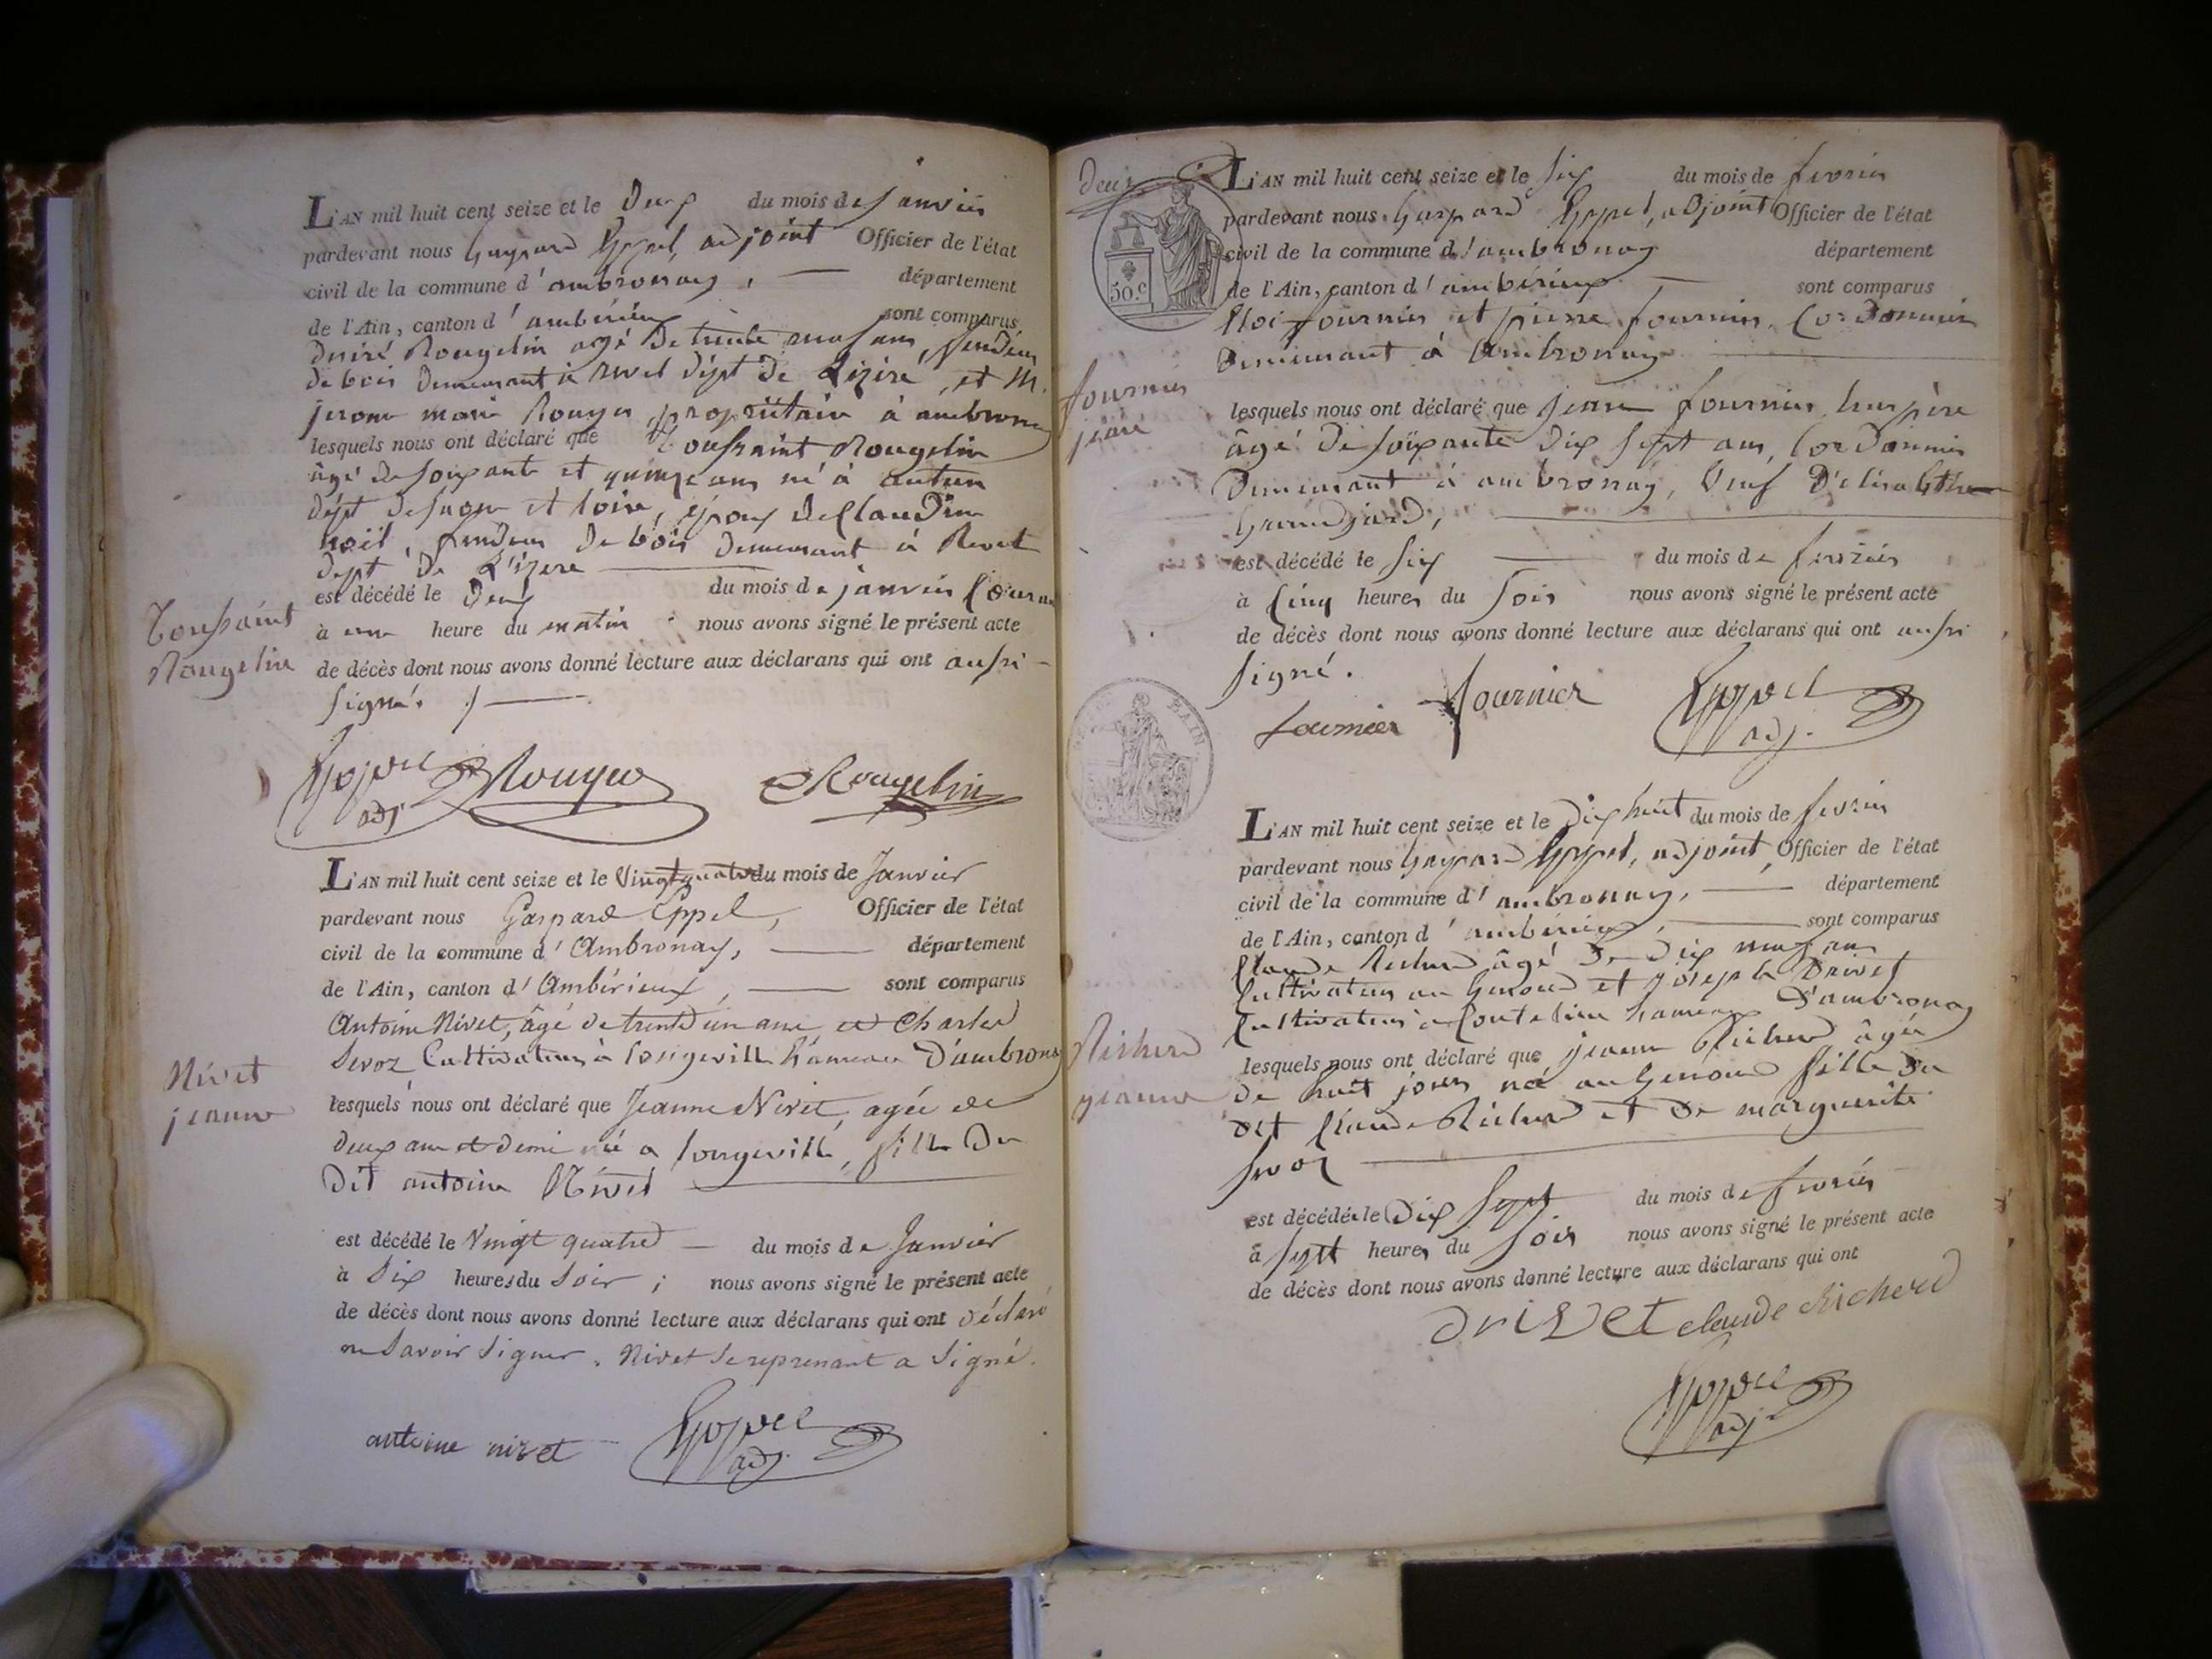 L'AN mil huit cent seize et le Deux du mois de janvier
pardevant nous Gaspard Eppel, adjoint Officier de l'état
civil de la commune d'ambronay, département
de l'Ain, canton d'ambérieux sont comparus
Desiré Rougelin agé de trente neuf ans, fendeur
de bois demeurant à Revel dépt de L'izère, et M.
jerome marie Rouyer, propriétaire à ambronay
lesquels nous ont déclaré que Toussaint Rougelin
âgé de soixante et quinze ans né à autun
dépt de saone et loire, époux de Claudine
noël, fendeur de bois demeurant à Revel
dept de L'izere
est décédé le Deux du mois de janvier Courant
à une heure du matin nous avons signé le présent acte
de décès dont nous avons donné lecture aux déclarans qui ont aussi
signé.
Toussaint
Rougelin
Eppel adj. Rouyer Rougelin
L'AN mil huit cent seize et le Vingt quatre du mois de Janvier
pardevant nous Gaspard Eppel, Officier de l'état
civil de la commune d'Ambronay, département
de l'Ain, canton d'Ambérieux, sont comparus
Antoine Nivet, âgé de trente un ans et Charles
Sevoz Cultivateurs à longeville hameau D'ambronay
lesquels nous ont déclaré que Jeanne Nivet, agée de
deux ans et demi née a longeville, fille Du
Dit antoine Nivet
Nivet
jeanne
est décédé le Vingt quatre du mois de Janvier
à Six heures du Soir; nous avons signé le présent acte
de décès dont nous avons donné lecture aux déclarans qui ont déclaré
ne Savoir Signer. Nivet Se reprenant a Signé.
antoine nivet Eppel adj.
Deux
50.c
L'AN mil huit cent seize et le six du mois de fevrier
pardevant nous Gaspard Eppel, adjoint Officier de l'état
civil de la commune d'ambronay département
de l'Ain, canton d'ambérieux sont comparus
Eloi fournier et pierre fournier, Cordonnier
Demeurant à Ambronay
fournier
jean
lesquels nous ont déclaré que jean fournier leur père
âgé de soixante dix sept ans, Cordonnier
Demeurant à ambronay, Veuf D'elisabeth
Grandjard,
est décédé le six du mois de fevrier
à Cinq heures du soir nous avons signé le présent acte
de décès dont nous avons donné lecture aux déclarans qui ont aussi
signé.
fournier fournier Eppel adj.
L'AN mil huit cent seize et le Dix huit du mois de fevrier
pardevant nous Gaspard Eppel, adjoint, Officier de l'état
civil de la commune d'ambronay, département
de l'Ain, canton d'ambérieux, sont comparus
Claude Richerd âgé De Dix neuf ans
Cultivateur au Genoud et joseph Drivet
Cultivateur à Coutelieu hameaux D'ambronay
Richerd
jeanne
lesquels nous ont déclaré que jeanne Richerd âgée
De huit jours née au Genoud fille Du
Dit Claude Richerd et De marguerite
Sevoz
est décédée le Dix Sept du mois de fevrier
à sept heures du Soir nous avons signé le présent acte
de décès dont nous avons donné lecture aux déclarans qui ont
drivet claude Richerd
Eppel adj.